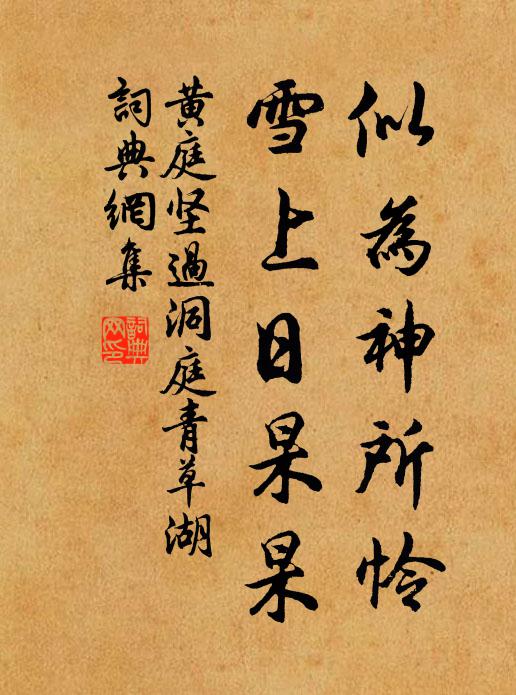 似為神所怜
雪上日杲杲
黄庭坚過洞庭青草湖
詞典網集
詞典网印